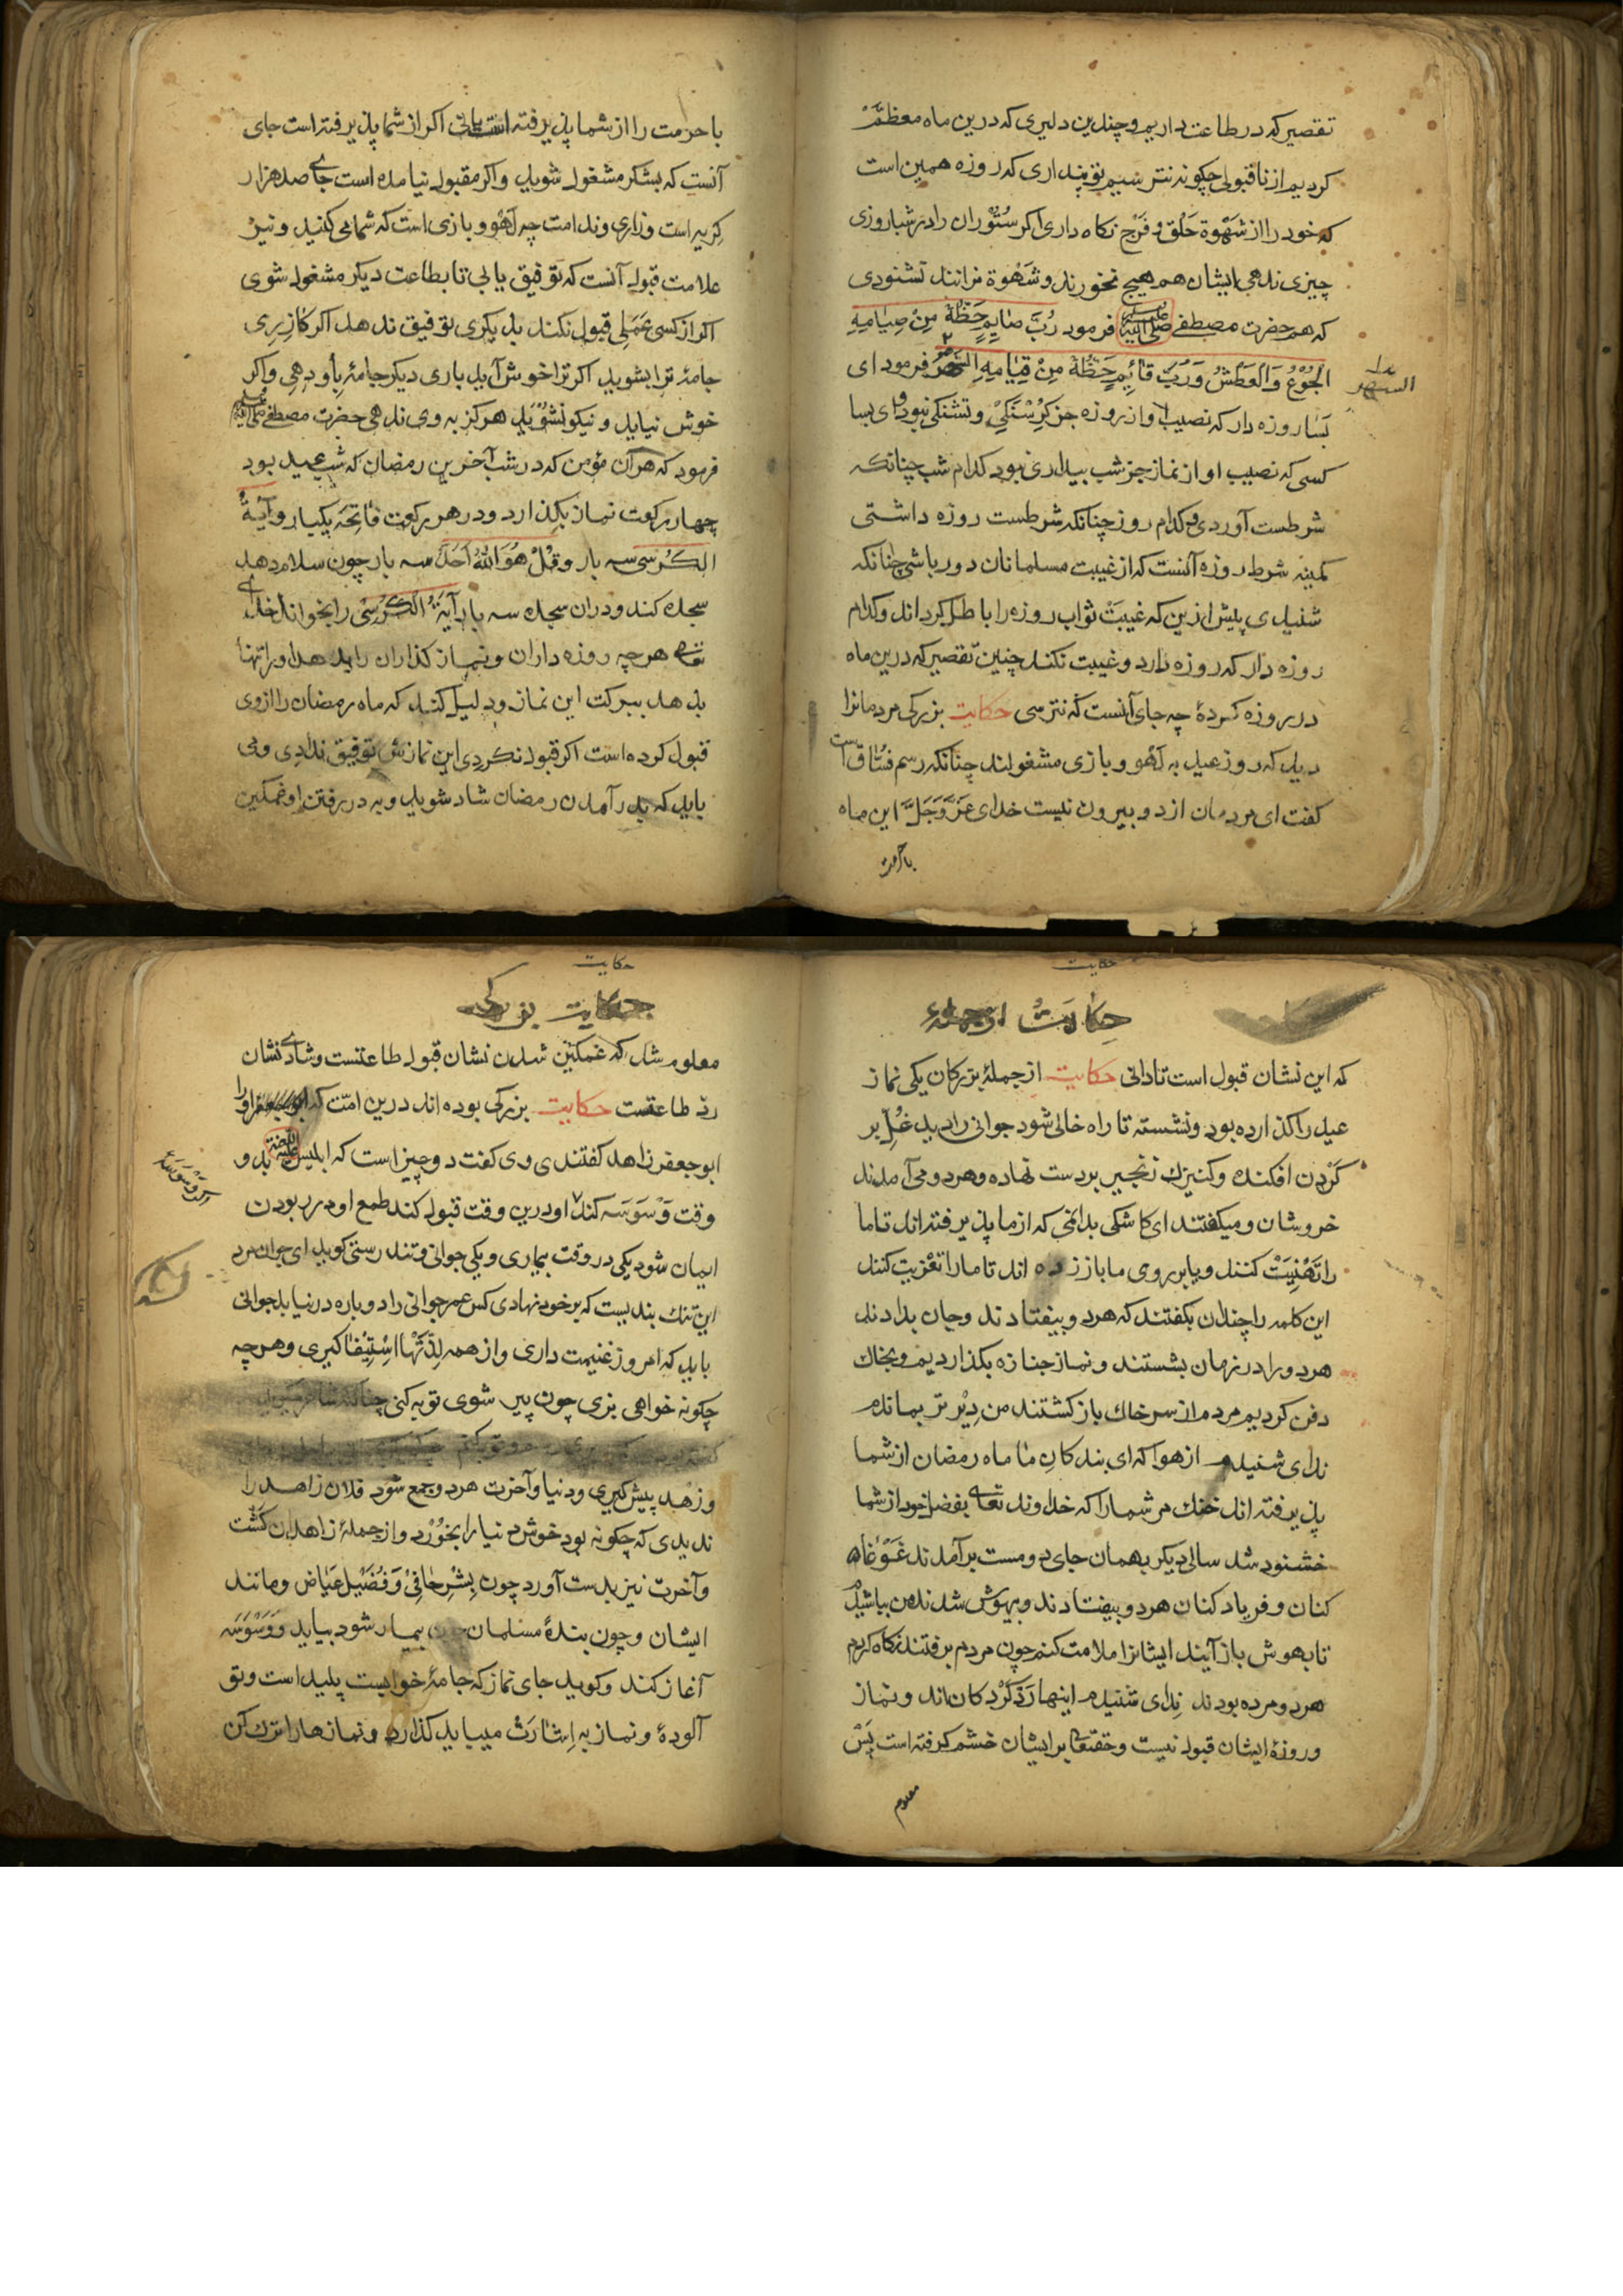 تقصیر که در طاعت داریم و چندین دلیری که درین ماه معظّم
کردیم از ناقبولی چکونه نترسیم تو پنداری که روزه همین است
که خود را از شَهْوة حَلْق و فَرْج نکاه داری اکر سُتُوران را در شباروزی
چیزی ندهی ایشان هم هیچ نخورند و شَهْوة نرانند نشنودی
که هم حضرت مصطفی صلی الله علیه فرمود رُبَّ صَایِمٍ حَظُّهُ مِنْ صِیَامِهِ
الْجُوْعُ وَالْعَطَشُ وَرُبَّ قَائِمٍ حَظُّهُ مِنْ قِیَامِهِ السَّهَرُ فرمود ای
السَّهَر
بَسا روزه دار که نصیب او از روزه جز کُرُسْنَکِیْ و تشنکی نبود و ای بسا
کسی که نصیب او از نماز جز شب بیداری نبود کدام شب چنانکه
شرطست آوردی و کدام روز چنانکه شرطست روزه داشتی
کمینه شرط روزه آنست که از غیبت مسلمانان دور باشی چنانکه
شنیدی پیش ازین که غیبَتْ ثواب روزه را باطل کرداند و کدام
روزه دار که روزه دارد و غیبت نکند چنین تقصیر که درین ماه
در روزه کردهٔ چه جای آنست که نترسی حکایت بزرکی مردمانرا
دید که روز عید به لَهْو و بازی مشغولند چنانکه رسم فُسّاق است
کفت ای مردمان از دو بیرون نیست خدای عَزَّ وَجَلَّ این ماه
باحرمت
با حرمت را از شما پذیرفته است یا نی اکر از شما پذیرفته است جای
آنست که بشکر مشغول شوید و اکر مقبول نیامده است جای صد هزار
کِریه است و زاری و ندامت چه لَهْو و بازی است که شما می کنید و نیز
علامت قبول آنست که توفیق یابی تا بطاعت دیکر مشغول شوی
اکر از کسی عَمَلی قبول نکند بدیکری توفیق ندهد اکر کازری
جامهٔ ترا بشوید اکر ترا خوش آید باری دیکر جامهٔ باو دهی و اکر
خوش نیاید و نیکو نشُوْیَد هرکز به وی ندهی حضرت مصطفی
فرمود که هر آن مؤمن که در شب آخرین رمضان که شب عید بود
چهار رکعت نماز بکذارد و در هر رکعت فَاتِحَه یکبار و آیَةُ
الکُرْسی سه بار و قُلْ هُوَ اللهُ اَحَدٌ سه بار چون سلام دهد
سجده کند و دران سجده سه بار آیَةُ الکُرْسی را بخواند خدای
تعالی هرچه روزه داران و نماز کذاران را بدهد او را تنها
بدهد ببرکت این نماز و دلیل کند که ماه رمضان را از وی
قبول کرده است اکر قبول نکردی این نمازش توفیق ندادی و می
باید که بدرآمدن رمضان شاد شوید و به در رفتن او غمکین
حکایت
حِکایَتْ از جملهٔ
که این نشان قبول است تا دانی حکایت از جملهٔ بزرکان یکی نماز
عید را کذارده بود و نشسته تا راه خالی شود جوانی را دید غُل بر
کَرْدن افکنده و کنیزک زنجیر بر دست نهاده و هر دو می آمدند
خروشان و میکفتند ای کاشکی بدانمی که از ما پذیرفته اند تا ما
را تَهْنِیَتْ کنند و یا بر روی ما باز زده اند تا ما را تَعْزیت کنند
این کلمه را چندان بکفتند که هر دو بیفتادند و جان بدادند
هر دو را در زمان بشستند و نماز جنازه بکذاردیم و بخاک
دفن کردیم مردم از سر خاک باز کشتند من دیْر تر بماندم
ندای شنیدم از هوا که ای بندکانِ ما ماه رمضان از شما
پذیرفته اند خنک مر شما را که خداوند تعالی بفضل خود از شما
خشنود شد سالی دیکر بهمان جای دو مست برآمدند غَوْغَاء
کنان و فریاد کنان هر دو بیفتادند و بیهوش شدند من بباشیدم
تا بهوش باز آیند ایشانرا ملامت کنم چون مردم برفتند نکاه کردم
هر دو مرده بودند نِدای شنیدم اینها رَدْ کَرْدکان اند و نماز
و روزهٔ ایشان قبول نیست و حقتعالی بر ایشان خشم کرفته است پَسْ
معلوم
حکایت
حکایت بزرکی
معلوم شد که غمکین شدن نشان قبول طاعتست و شادی نشان
ردّ طاعتست حکایت بزرکی بوده اند درین امّت که او را
ابو جعفر زاهد کفتندی وی کفت دو چیز است که ابلیس علیه اللعنة بدو
وقت وَسْوَسَه کند او درین وقت قبول کند طمع او در ربودن
ایمان شود یکی در وقت بیماری و یکی جوانی و تندرستی کوید ای جوانمرد
این تنک بندیست که بر خود نهادی کس عمر جوانی را دوباره در نیابد جوانی
باید که امروز غنیمت داری و از همه لِذَّتْها اسْتِیْفا کیری و هرچه
چکونه خواهی بزی چون پیر شوی توبه کنی
و زهد پیش کیری و دنیا و آخرت هر دو جمع شود فلان زاهد را
ندیدی که چکونه بود خوش دنیا را بخُوْرد و از جملهٔ زاهدان کَشت
و آخرت نیز بدست آورد چون بِشْر حَافِیْ وَ فُضَیْل عَیَاض و مانند
ایشان و چون بندهٔ مسلمان بیمار شود بیاید و وَسْوَسَه
آغاز کند و کوید جای نماز که جامهٔ خوابست پلید است و تو
آلودهٔ و نماز به اِشَارَتْ میباید کذارد و نمازها را ترک کن